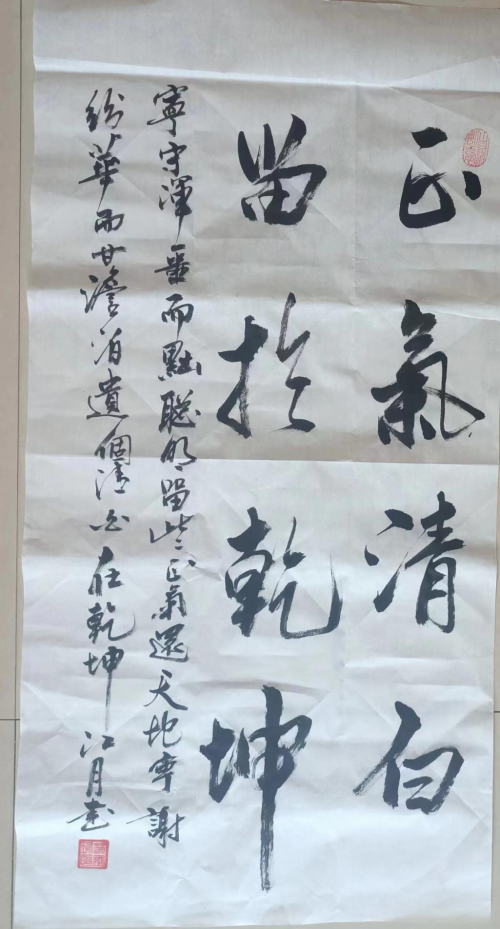 正氣清白
留於乾坤
寧守渾噩而黜聰明留些正氣還天地寧謝
紛華而甘澹泊遺個清白在乾坤 江月書